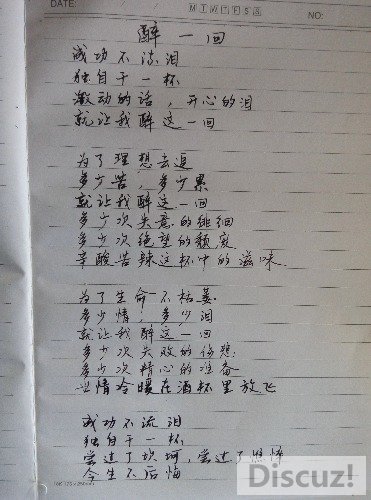 DATE: M T W T F S S NO:
醉一回
成功不流泪
独自干一杯
激动的话，开心的泪
就让我醉这一回
为了理想去追
多少苦，多少累
就让我醉这一回
多少次失意的徘徊
多少次绝望的颓废
辛酸苦辣这杯中的滋味
为了生命不枯萎
多少情，多少泪
就让我醉这一回
多少次失败的伤悲
多少次精心的准备
世情冷暖在酒杯里放飞
成功不流泪
独自干一杯
尝过了坎坷，尝过了憔悴
今生不后悔
Discuz!